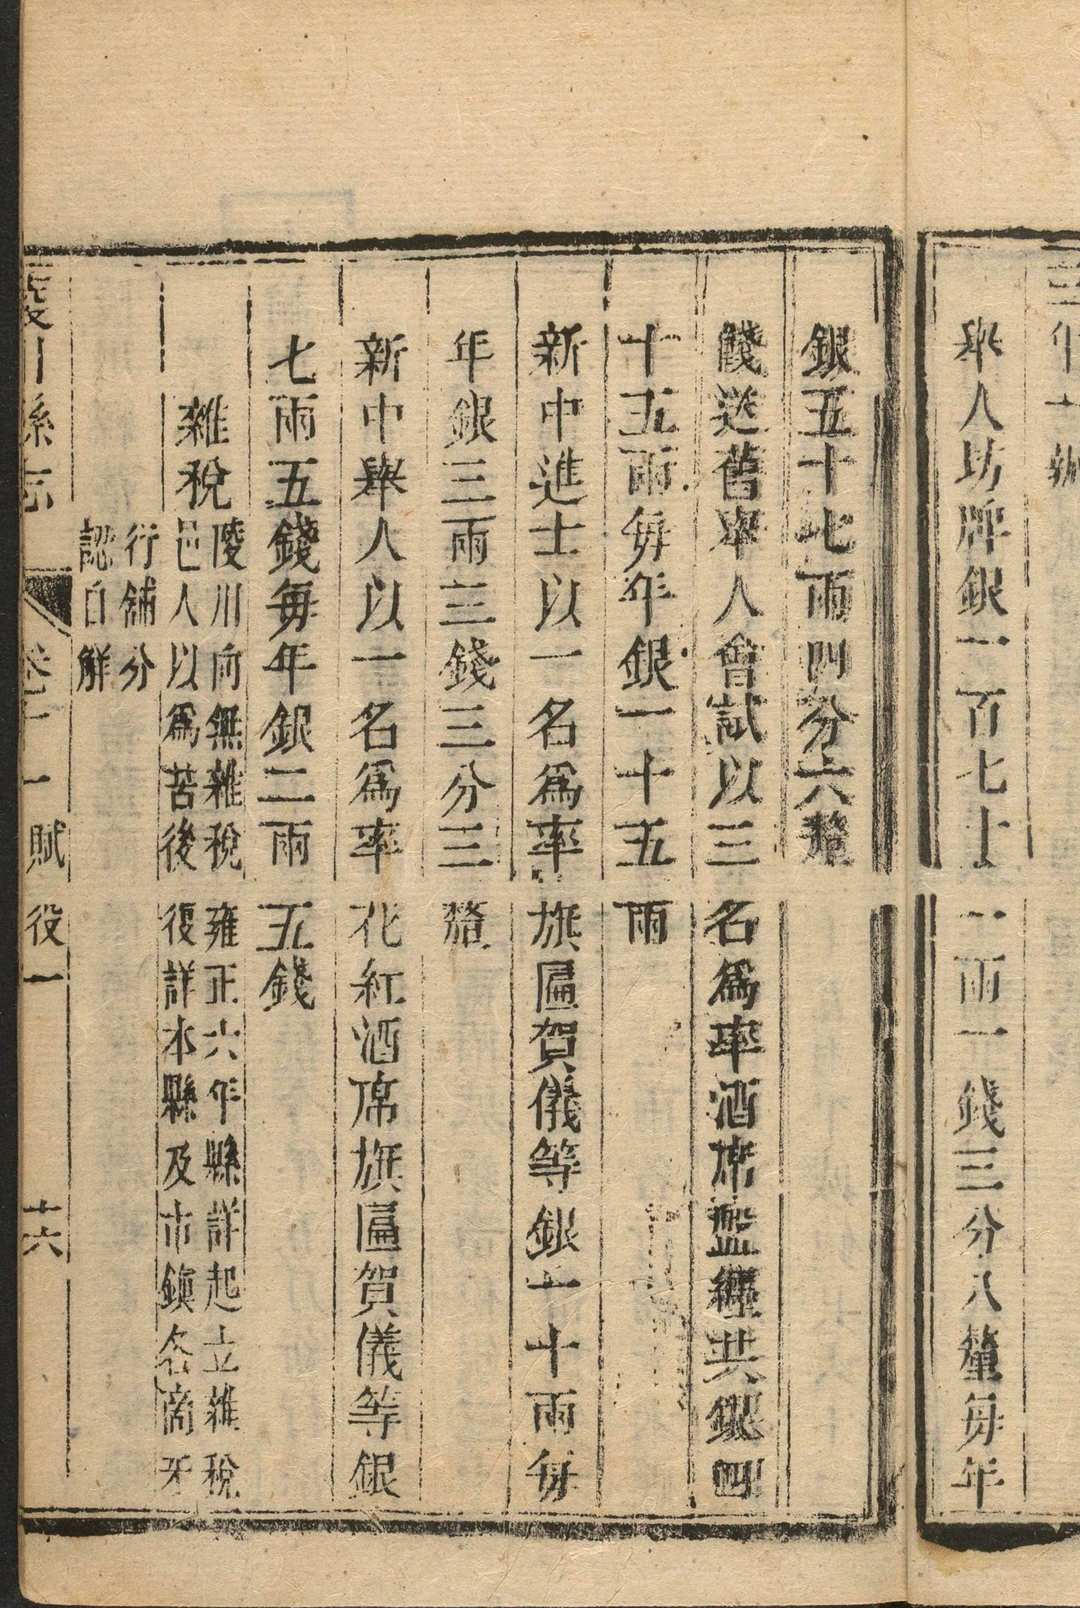 三年一辦
舉人坊牌銀一百七十一兩一錢三分八釐每年
銀五十七兩四分六釐
餞送舊舉人會試以三名爲率酒席盤纏共銀四
十五兩每年銀一十五兩
新中進士以一名爲率旗匾賀儀等銀一十兩每
年銀三兩三錢三分三釐
新中舉人以一名爲率花紅酒席旗匾賀儀等銀
七兩五錢每年銀二兩五錢
雜稅
陵川向無雜稅雍正六年縣詳起立雜稅
邑人以爲苦後復詳本縣及市鎮各商牙
行舖分
認自解
陵川縣志 卷十一 賦役一 十六